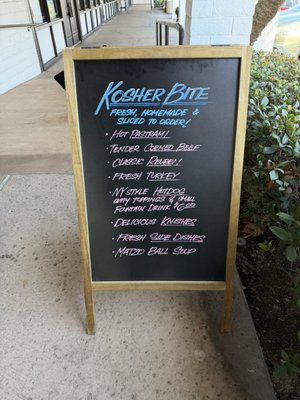 KOSHER BITE
FRESH, HOMEMADE &
SLICED TO ORDER!
• HOT PASTRAMI!
• TENDER CORNED BEEF
• CLASSIC REUBEN!
• FRESH TURKEY
• NY STYLE HOTDOG
ANY TOPPINGS & SMALL
FOUNTAIN DRINK $6.00
• DELICIOUS KNISHES
• FRESH SIDE DISHES
• MATZO BALL SOUP